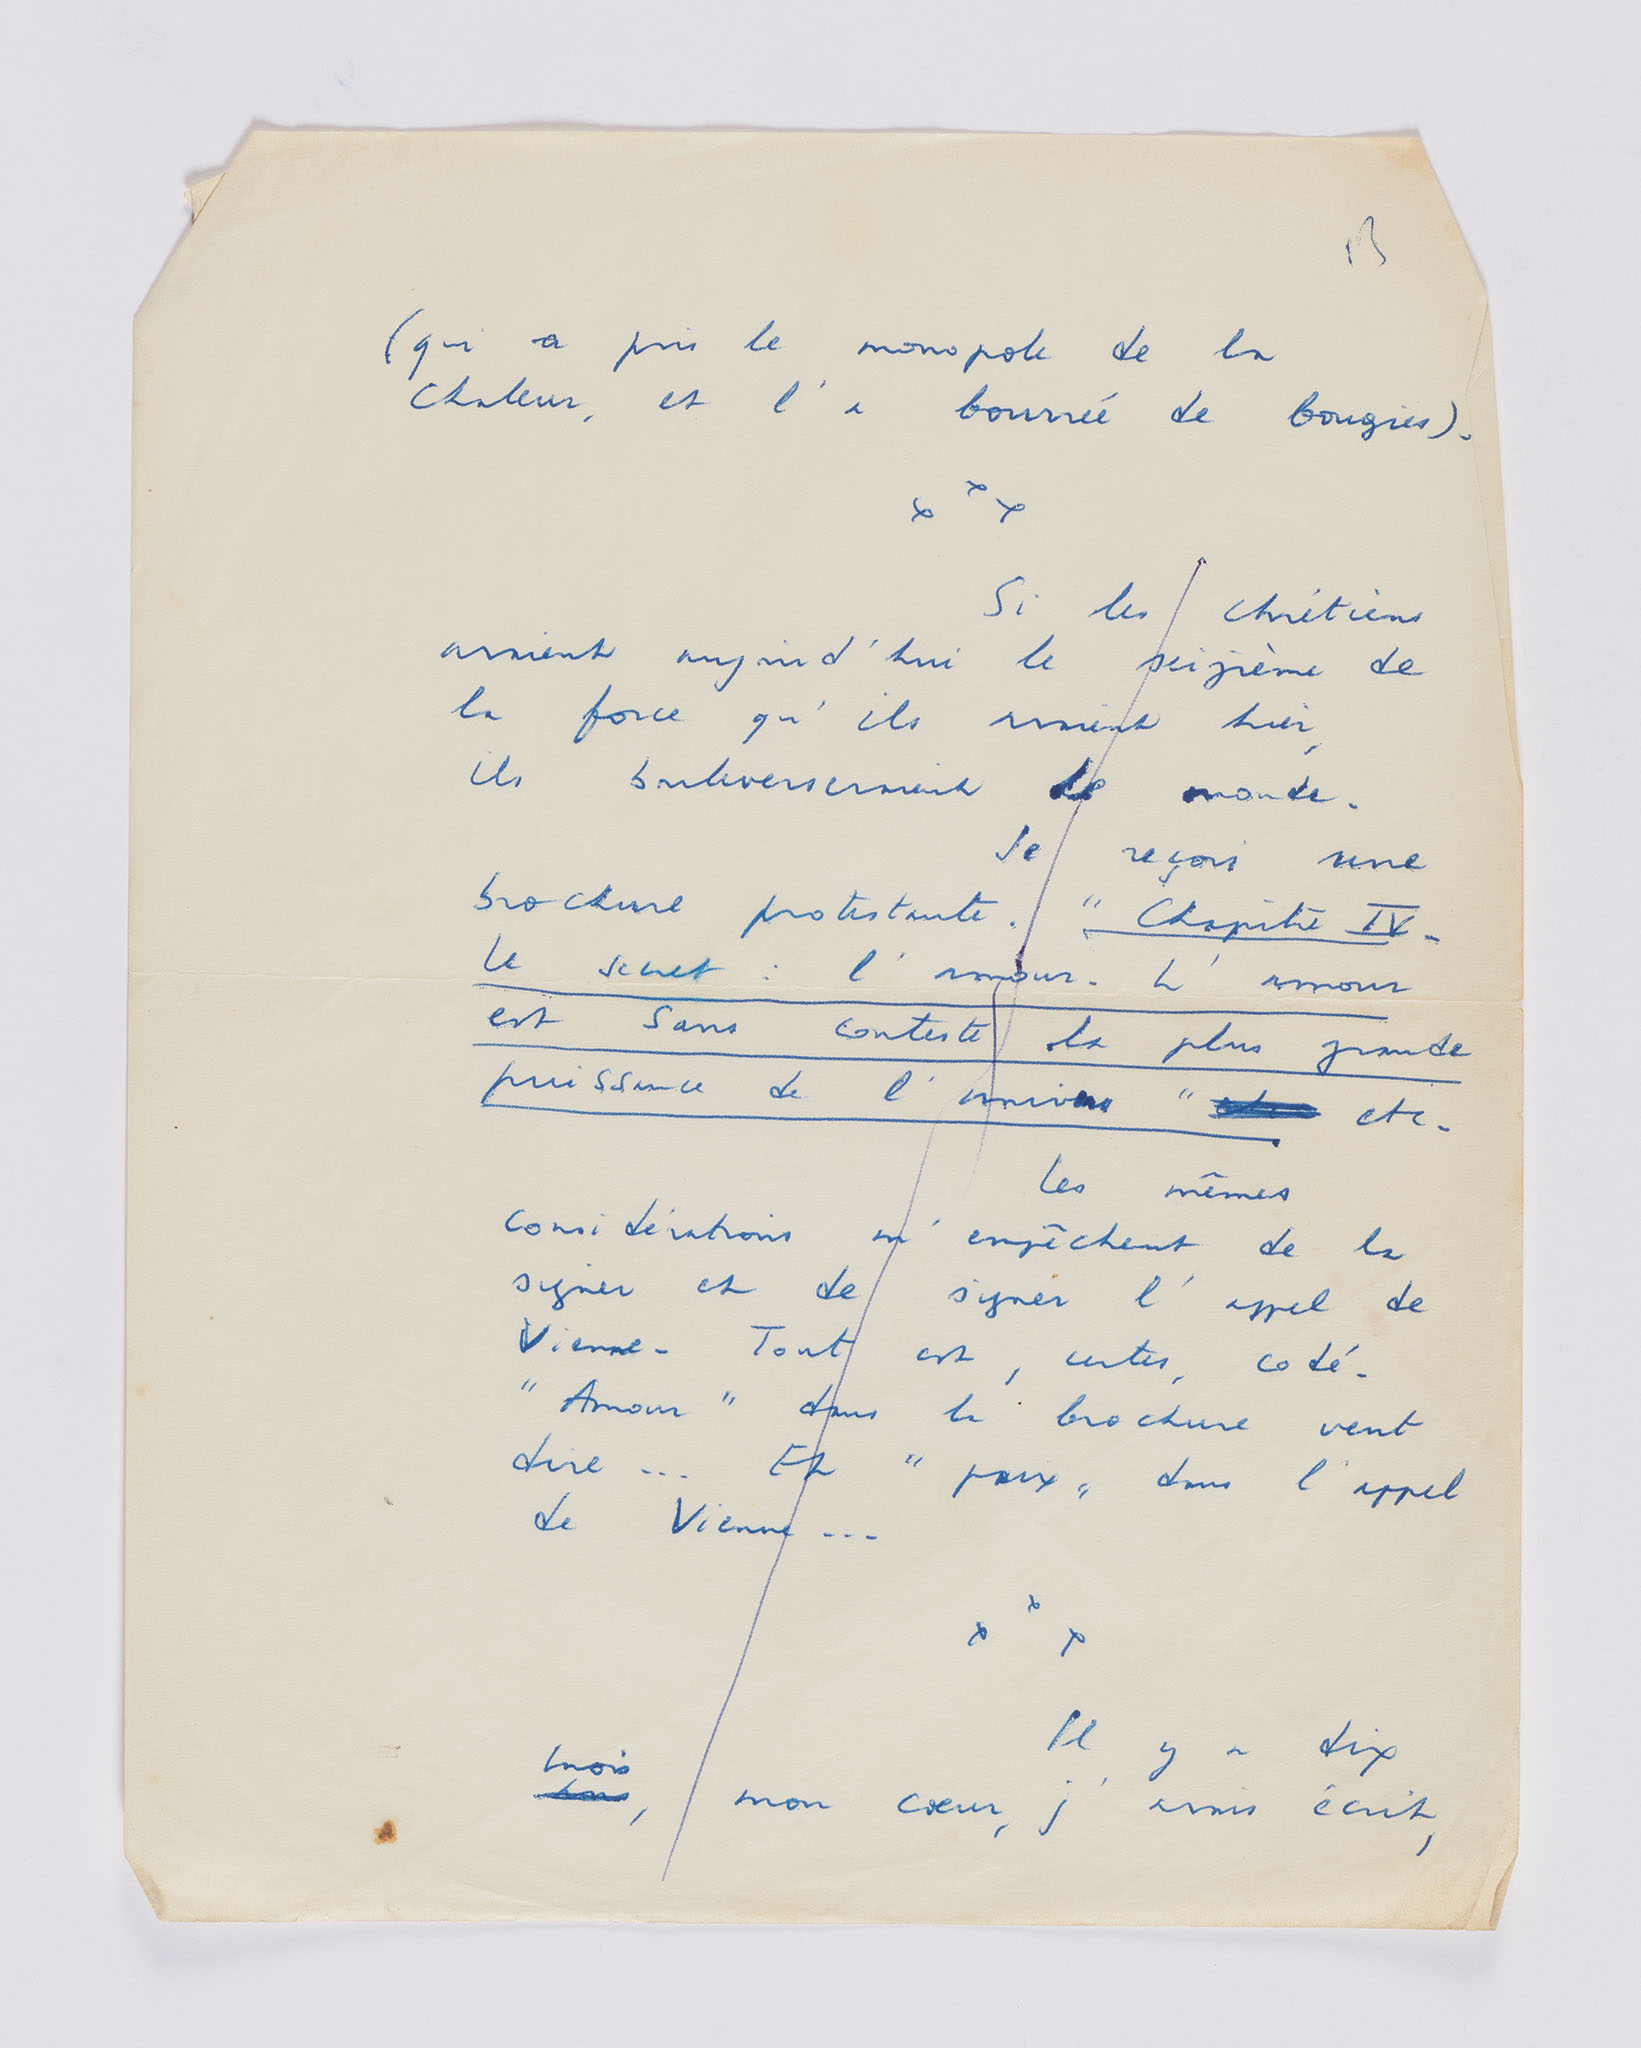 13
(qui a pris le monopole de la
chaleur, et l'a bourrée de bougies).
x x x
Si les chrétiens
avaient aujourd'hui le seizième de
la force qu'ils avaient hier,
ils bouleverseraient le monde.
Je reçois une
brochure protestante. "Chapitre IV.
Le secret : l'amour. L'amour
est sans conteste la plus grande
puissance de l'univers" etc.
Les mêmes
considérations m'empêchent de la
signer et de signer l'appel de
Vienne. Tout est, certes, codé.
"Amour" dans la brochure veut
dire ... Et "paix" dans l'appel
de Vienne ...
x x x
Il y a dix
mois
ans, mon cœur, j'avais écrit,